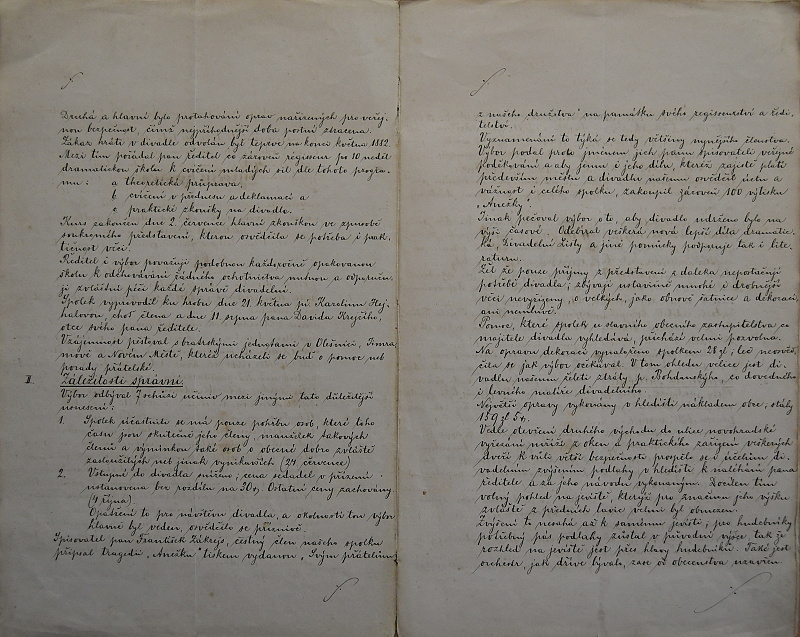 Druhá a hlavní bylo protahování oprav nařízených pro veřej-
nou bezpečnost, čímž nejpříhodnější doba postní ztracena.
Zákaz hráti v divadle odvolán byl teprve na konci května 1882.
Mezi tím pořádal pan ředitel co zároveň regisseur po 10 neděl
dramatickou školu k cvičení mladých sil dle tohoto progra-
mu: a theoretická průprava,
b cvičení v přednesu a deklamaci a
c praktické zkoušky na divadle.
Kurs zakončen dne 2. července hlavní zkouškou ve způsobě
soukromého představení, kterou osvědčila se potřeba i prak-
tičnost věci.
Ředitel i výbor považují podobnou každoročně opakovanou
školu k odchovávání řádného ochotnictva nutnou a odporučen-
ji zvláštní péči každé správě divadelní.
Spolek vyprovodil ku hrobu dne 21 května pí. Karolinu Hej-
halovou, choť člena a dne 11. srpna pana Davida Krejčího,
otce svého pana ředitele.
Vzájemnost pěstoval s bratrskými jednotami v Olešnici, Jimra
mově a Novém Městě, kteréž ucházeli se buď o pomoc neb
porady přátelské.
II. Záležitosti správní.
Výbor odbýval 7 schůzí učiniv mezi jinými tato důležitější
usnesení:
1. Spolek účastniti se má pouze pohřbu osob, které toho
času jsou skutečně jeho členy, manželek takových
členů a výminkou také osob o obecné dobro zvláště
zasloužilých neb jinak vynikavších (24 července)
2. Vstupné do divadla sníženo, cena sedadel v přízemí
ustanovena bez rozdílu na 30 kr. Ostatní ceny zachovány.
(4 října).
Opatření to pro návštěvu divadla, a okolnosti ton výbor
hlavně byl veden, osvědčilo se příznivě.
Spisovatel pan František Zákrejs, čestný člen našeho spolku
připsal tragedii „Anežku" tiskem vydanou „Svým přátelům
z našeho „družstva" na památku svého regisseurství a ředi-
telství.
Vyznamenání to týká se tedy většiny nynějšího členstva.
Výbor podal proto jménem jich panu spisovateli veřejné
poděkování a aby jemu i jeho dílu, kteréž zajisté platí
především městu a divadlu našemu osvědčil úctu a
vážnost i celého spolku, zakoupil zároveň 100 výtisků
„Anežky".
Jinak pečoval výbor o to, aby divadlo udrženo bylo na
výši časové. Odebíral veškerá nová lepší díla dramatic-
ká, Divadelní Listy a jiné pomůcky podporuje tak i lite-
raturu.
Žel že pouze příjmy z představení z daleka nepostačují
potřebě divadla; zbývají ustavičně mnohé i drobnější
věci nevyřízeny, o velkých, jako obnově šatnice a dekorací
ani nemluvě.
Pomoc, které spolek u slavného obecního zastupitelstva co
majitele divadla vyhledává, přichází velmi pozvolna.
Na opravu dekorací vynaloženo spolkem 28 zl, leč neosvěd-
čila se jak výbor očekával. V tom ohledu velice jest di-
vadlu našemu želeti ztráty p. Bohdanského, co dovedného
i levného malíře divadelního.
Největší opravy vykonány v hledišti nákladem obce; stály
159 zl 54.
Vedle otevření druhého východu do ulice novohradské
vyřezání mříží z oken a praktického zařízení veškerých
dveří k vůli větší bezpečnosti prospělo se i účelům di-
vadelním zvýšením podlahy v hledišti k naléhání pana
ředitele a za jeho návodu vykonaným. Docílen tím
volný pohled na jeviště, kterýž pro značnou jeho výšku
zvláště z předních lavic velmi byl obmezen.
Zvýšení to nesahá až k samému jevišti; pro hudebníky
potřebný pás podlahy zůstal v původní výšce, tak že
rozhled na jeviště jest přes hlavy hudebníků. Také jest
orchestr, jak dříve býval, zase od obecenstva uzavřen.